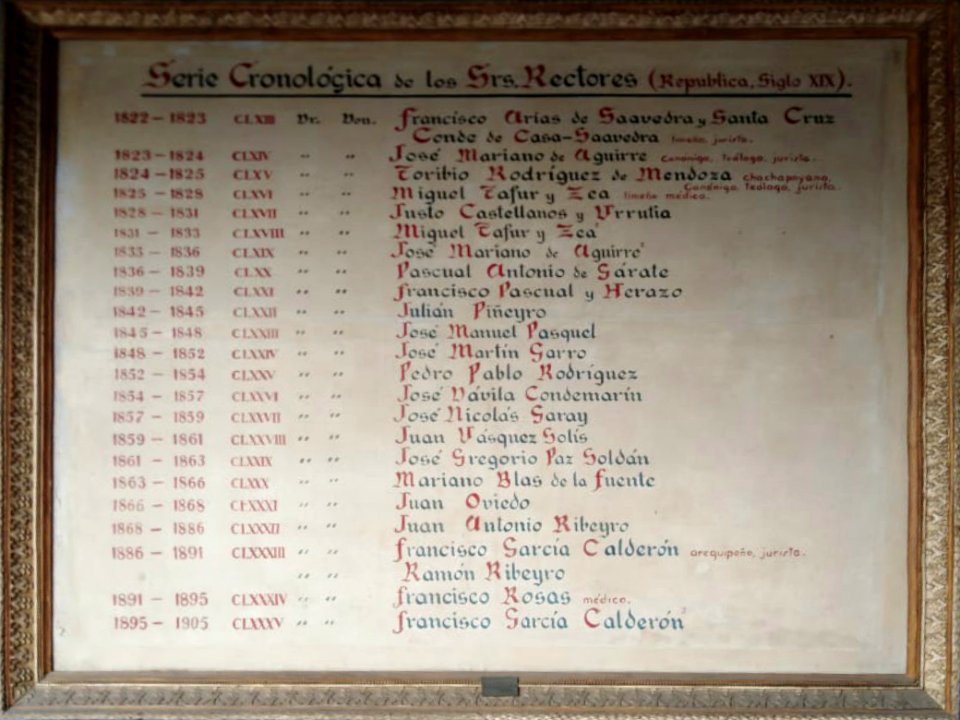 Serie Cronológica de los Srs. Rectores (República, Siglo XIX).
1822 – 1823 CLXIII Dr. Don. Francisco Arias de Saavedra y Santa Cruz
Conde de Casa-Saavedra limeño, jurista.
1823 – 1824 CLXIV " " José Mariano de Aguirre Canónigo, Teólogo, jurista.
1824 – 1825 CLXV " " Toribio Rodríguez de Mendoza chachapoyano,
Canónigo, Teólogo, jurista.
1825 – 1828 CLXVI " " Miguel Tafur y Zea limeño médico.
1828 – 1831 CLXVII " " Justo Castellanos y Urrutia
1831 – 1833 CLXVIII " " Miguel Tafur y Zea
1833 – 1836 CLXIX " " José Mariano de Aguirre
1836 – 1839 CLXX " " Pascual Antonio de Gárate
1839 – 1842 CLXXI " " Francisco Pascual y Herazo
1842 – 1845 CLXXII " " Julián Piñeyro
1845 – 1848 CLXXIII " " José Manuel Pasquel
1848 – 1852 CLXXIV " " José Martín Garro
1852 – 1854 CLXXV " " Pedro Pablo Rodríguez
1854 – 1857 CLXXVI " " José Dávila Condemarín
1857 – 1859 CLXXVII " " José Nicolás Garay
1859 – 1861 CLXXVIII " " Juan Vásquez Solís
1861 – 1863 CLXXIX " " José Gregorio Paz Soldán
1863 – 1866 CLXXX " " Mariano Blas de la Fuente
1866 – 1868 CLXXXI " " Juan Oviedo
1868 – 1886 CLXXXII " " Juan Antonio Ribeyro
1886 – 1891 CLXXXIII " " Francisco García Calderón arequipeño, jurista.
" " Ramón Ribeyro
1891 – 1895 CLXXXIV " " Francisco Rosas médico.
1895 – 1905 CLXXXV " " Francisco García Calderón